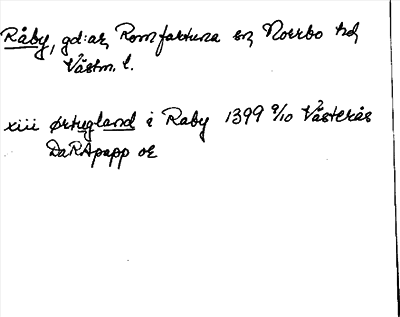 Råby, gd:ar, Romfartuna sn, Norrbo hd,
Västm. l.
xiii ørtugland i Raby 1399 9/10 Västerås
DaRApapp or